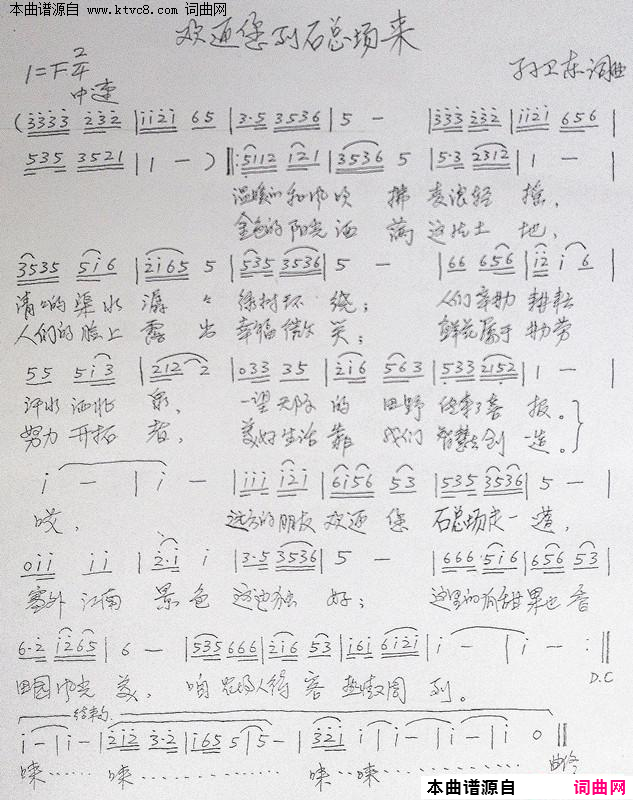 本曲谱源自 www.ktvc8.com 词曲网
欢迎您到石总场来
1=F 2/4
中速
孙卫东 词曲
(3333 232 | 1121 65 | 3·5 3536 | 5 — | 333 232 | 1121 656 |
535 3521 | 1 — ) ‖: 5112 121 | 3536 5 | 5·3 2312 | 1 — |
温暖的和风吹 拂 麦浪轻 摇,
金色的阳光洒 满 这片土 地,
3535 516 | 2165 5 | 535 3536 | 5 — | 66 656 | 12 1 6 |
清清的渠水 潺 々 绿树环 绕; 人们辛勤 耕耘
人们的脸上 露 出 幸福微 笑; 鲜花属于 勤劳
55 513 | 212 2 | 033 35 | 216 563 | 533 2152 | 1 — |
汗水洒北 泉, 一望无际 的 田野 传来了喜 报。
努力开拓 者, 美好生活 靠 我们 智慧去创 造。
1 — | 1 — | 111 121 | 6156 53 | 535 3536 | 5 — |
哎, 远方的朋友 欢迎 您 石总场走一 遭,
011 11 | 2·1 1 | 3·5 3536 | 5 — | 666 516 | 656 53 |
塞外江南 景色 这边独 好; 这里的 甜果也香
6·2 1265 | 6 — | 535 666 | 216 53 | 161 6121 | 1 — | 1 — :‖
田园风光 美, 咱农场人待 客 热 周 到。
D.C
结束句
1 — | 1 — | 212 3·2 | 165 5 | 5 — | 321 1 | 1 — | 1 — | 1 0 ‖
来…… 来…… 来…来……
曲终
本曲谱源自 词曲网